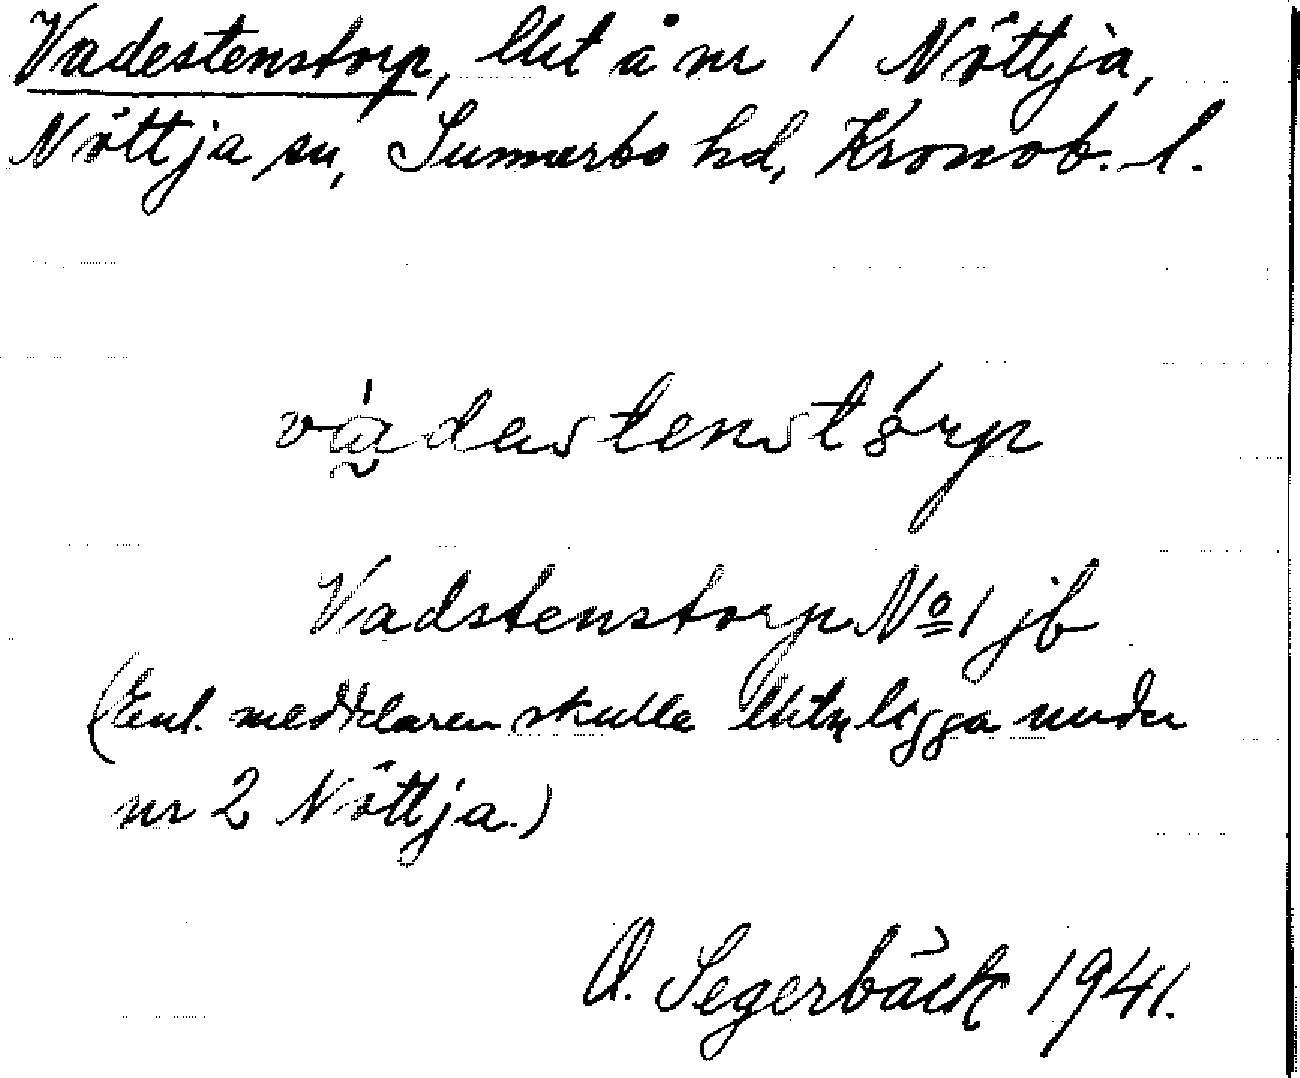 Vadestenstorp, lht å nr 1 Nöttja,
Nöttja sn, Sunnerbo hd, Kronob. l.
vàdestenstórp
Vadstenstorp No 1 jb
(Enl. meddelaren skulle lhtn ligga under
nr 2 Nöttja.)
O. Segerbäck 1941.